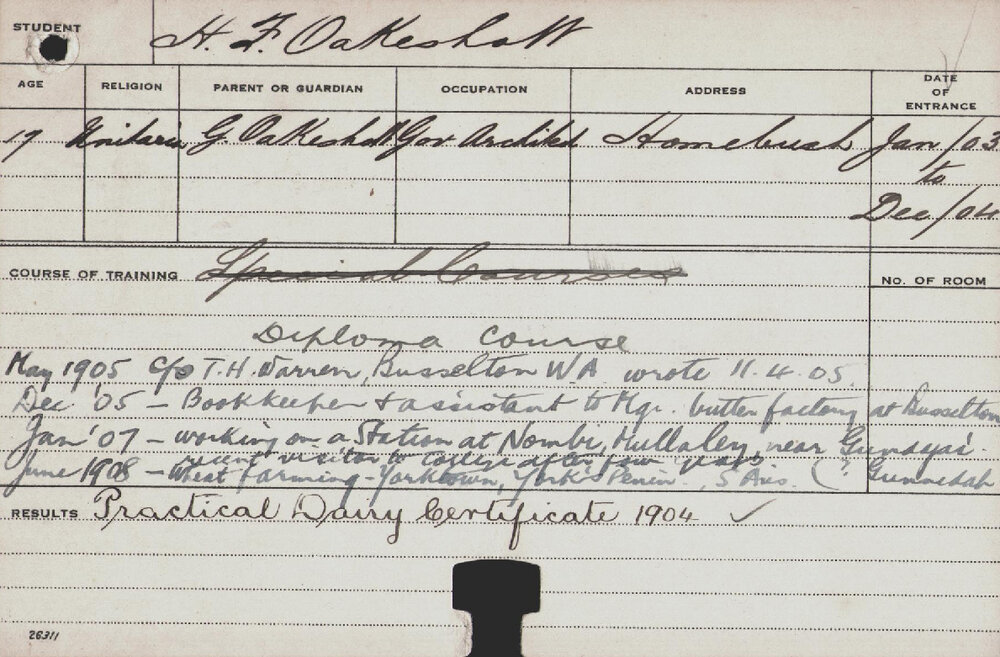 STUDENT H. F. Oakeshott
AGE RELIGION PARENT OR GUARDIAN OCCUPATION ADDRESS DATE OF ENTRANCE
17 Unitarian G. Oakeshott Gov Architect Homebush Jan/03
to
Dec/04
COURSE OF TRAINING Special Courses
No. OF ROOM
Diploma Course
May 1905 c/o T.H. Warren, Busselton WA wrote 11.4.05.
Dec '05 – Bookkeeper & assistant to Mgr. butter factory at Busselton
Jan '07 – working on a Station at Nombi, Mullaley near
recent visitor to College after few years
June 1908 – Wheat farming – Yorketown, York's Penin., S Aus. (? Gunnedah
RESULTS Practical Dairy Certificate 1904 ✓
26311